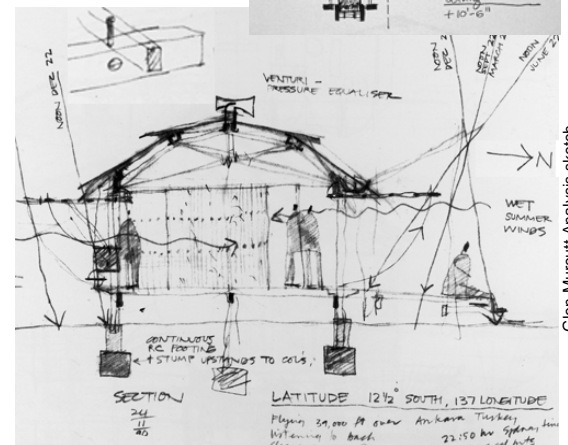 +10'-6"
NOON DEC 22
NOON
DEC
NOON
SEPT 22
MARCH
NOON
JUNE 22
VENTURI -
PRESSURE EQUALISER
→N
WET
SUMMER
WINDS
CONTINUOUS
RC FOOTING
+ STUMP UPSTANDS TO COL'S;
SECTION
24
11
LATITUDE 12½° SOUTH, 137 LONGITUDE
Flying 39,000 ft over Ankara Turkey
listening to bach
22:50 hr Sydney time
Glen Murcutt Analysis sketch